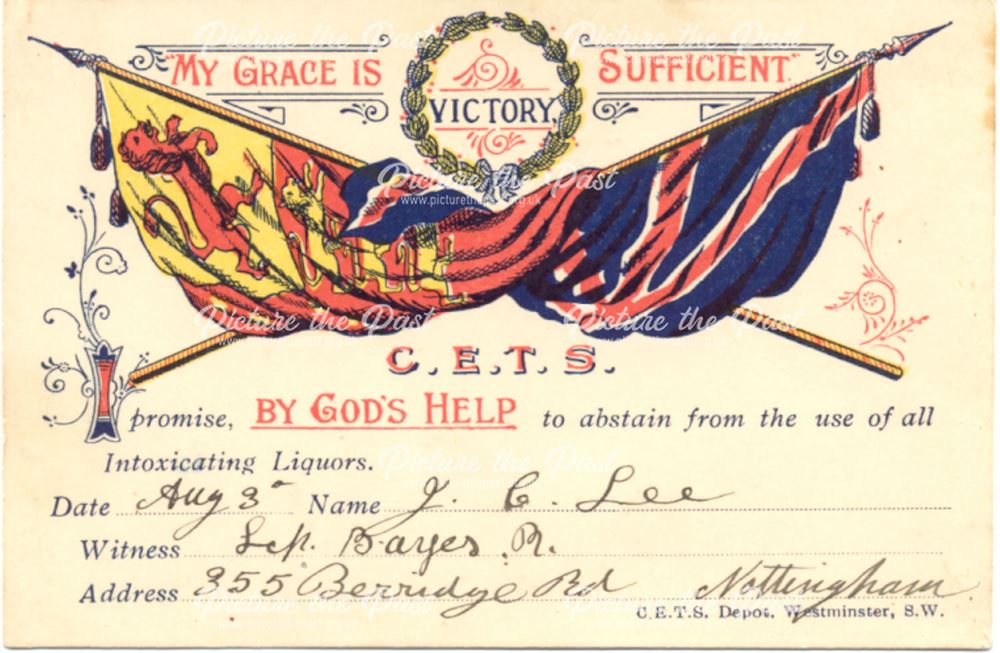 "MY GRACE IS SUFFICIENT"
VICTORY.
C.E.T.S.
I promise, BY GOD'S HELP to abstain from the use of all
Intoxicating Liquors.
Date Aug 3 Name J. C. Lee
Witness Bayes. R.
Address 355 Berridge Rd Nottingham
C.E.T.S. Depot, Westminster, S.W.
Picture the Past
www.picturethepast.org.uk